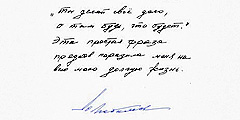 "Ты делай своё дело,
а там будь, что будет."
Эта простая фраза
прадедов поразила меня на
всю мою долгую жизнь.